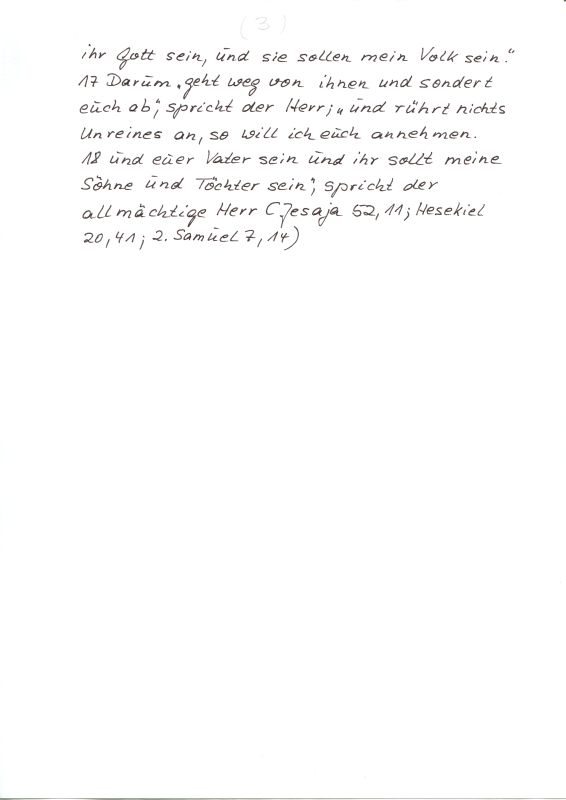 (3)
ihr Gott sein, und sie sollen mein Volk sein."
17 Darum „geht weg von ihnen und sondert
euch ab", spricht der Herr; „und rührt nichts
Unreines an, so will ich euch annehmen.
18 und euer Vater sein und ihr sollt meine
Söhne und Töchter sein", spricht der
allmächtige Herr (Jesaja 52, 11; Hesekiel
20, 41; 2. Samuel 7, 14)